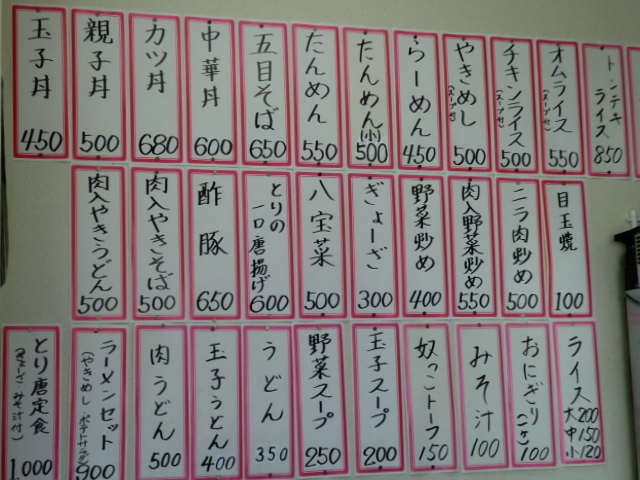 玉子丼
450
親子丼
500
カツ丼
680
中華丼
600
五目そば
650
たんめん
550
たんめん(小)
500
らーめん
450
やきめし
(スープ付)
500
チキンライス
(スープ付)
500
オムライス
(スープ付)
550
トンテキ
ライス
850
肉入やきうどん
500
肉入やきそば
500
酢豚
650
とりの
一口唐揚げ
600
八宝菜
500
ぎょーざ
300
野菜炒め
400
肉入野菜炒め
550
ニラ肉炒め
500
目玉焼
100
とり唐定食
(ぎょーざ・みそ汁付)
1000
ラーメンセット
(やきめし・ポテトサラダ)
900
肉うどん
500
玉子うどん
400
うどん
350
野菜スープ
250
玉子スープ
200
奴っこトーフ
150
みそ汁
100
おにぎり
(一ケ)
100
ライス
大200
中150
小120